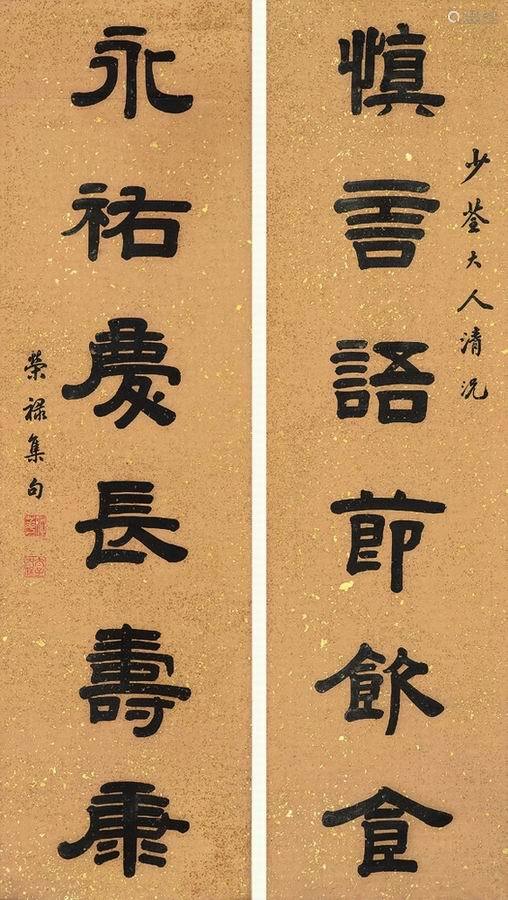 少荃大人清况
慎言語節飲食
永祐慶長壽康
榮祿集句